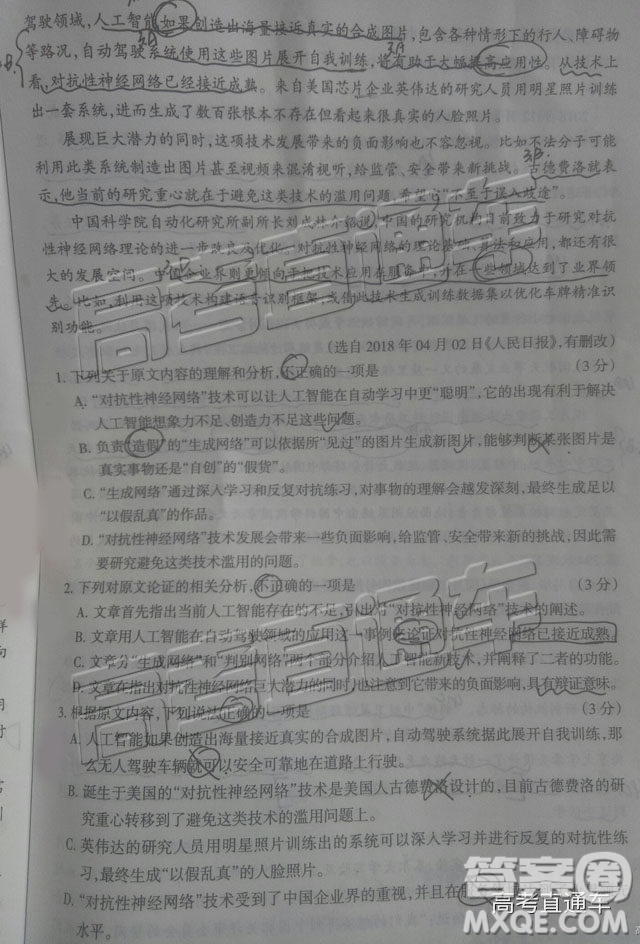 驾驶领域,人工智能如果创造出海量接近真实的合成图片,包含各种情形下的行人、障碍物
等路况,自动驾驶系统使用这些图片展开自我训练,将有助于大幅提高应用性。从技术上
看,对抗性神经网络已经接近成熟。来自美国芯片企业英伟达的研究人员用明星照片训练
出一套系统,进而生成了数百张根本不存在但看起来很真实的人脸照片。
展现巨大潜力的同时,这项技术发展带来的负面影响也不容忽视。比如不法分子可能
利用此类系统制造出图片甚至视频来混淆视听,给监管、安全带来新挑战。古德费洛就表
示,他当前的研究重心就在于避免这类技术的滥用问题,希望它“不至于误入歧途”。
中国科学院自动化研究所副所长刘成林介绍说,中国的研究机构目前致力于研究对抗
性神经网络理论的进一步改良及优化。对抗性神经网络的理论基础、算法和应用,都还有很
大的发展空间。中国企业界则更倾向于把技术应用在服务中,并在一些领域达到了业界领
先。比如,利用这项技术构建语音识别框架,或借此技术生成训练数据集以优化车牌精准识
别功能。
(选自 2018 年 04 月 02 日《人民日报》,有删改)
1. 下列关于原文内容的理解和分析,不正确的一项是 (3 分)
A. “对抗性神经网络”技术可以让人工智能在自动学习中更“聪明”,它的出现有利于解决
人工智能想象力不足、创造力不足这些问题。
B. 负责“造假”的“生成网络”可以依据所“见过”的图片生成新图片,能够判断某张图片是
真实事物还是“自创”的“假货”。
C. “生成网络”通过深入学习和反复对抗练习,对事物的理解会越发深刻,最终生成足以
“以假乱真”的作品。
D. “对抗性神经网络”技术发展会带来一些负面影响,给监管、安全带来新的挑战,因此需
要研究避免这类技术滥用的问题。
2. 下列对原文论证的相关分析,不正确的一项是 (3 分)
A. 文章首先指出当前人工智能存在的不足,引出对“对抗性神经网络”技术的阐述。
B. 文章用人工智能在自动驾驶领域的应用这一事例来论证对抗性神经网络已接近成熟。
C. 文章分“生成网络”和“判别网络”两个部分介绍人工智能新技术,并阐释了二者的功能。
D. 文章在指出对抗性神经网络巨大潜力的同时,也注意到它带来的负面影响,具有辩证意味。
3. 根据原文内容,下列说法正确的一项是 (3 分)
A. 人工智能如果创造出海量接近真实的合成图片,自动驾驶系统据此展开自我训练,那
么无人驾驶车辆就可以安全可靠地在道路上行驶。
B. 诞生于美国的“对抗性神经网络”技术是美国人古德费洛设计的,目前古德费洛的研
究重心转移到了避免这类技术的滥用问题上。
C. 英伟达的研究人员用明星照片训练出的系统可以深入学习并进行反复的对抗性练
习,最终生成“以假乱真”的人脸照片。
D. “对抗性神经网络”技术受到了中国企业界的重视,并且在
水平。
高考直通车
高考直通车
答案圈
高考直通车
MXQE.COM